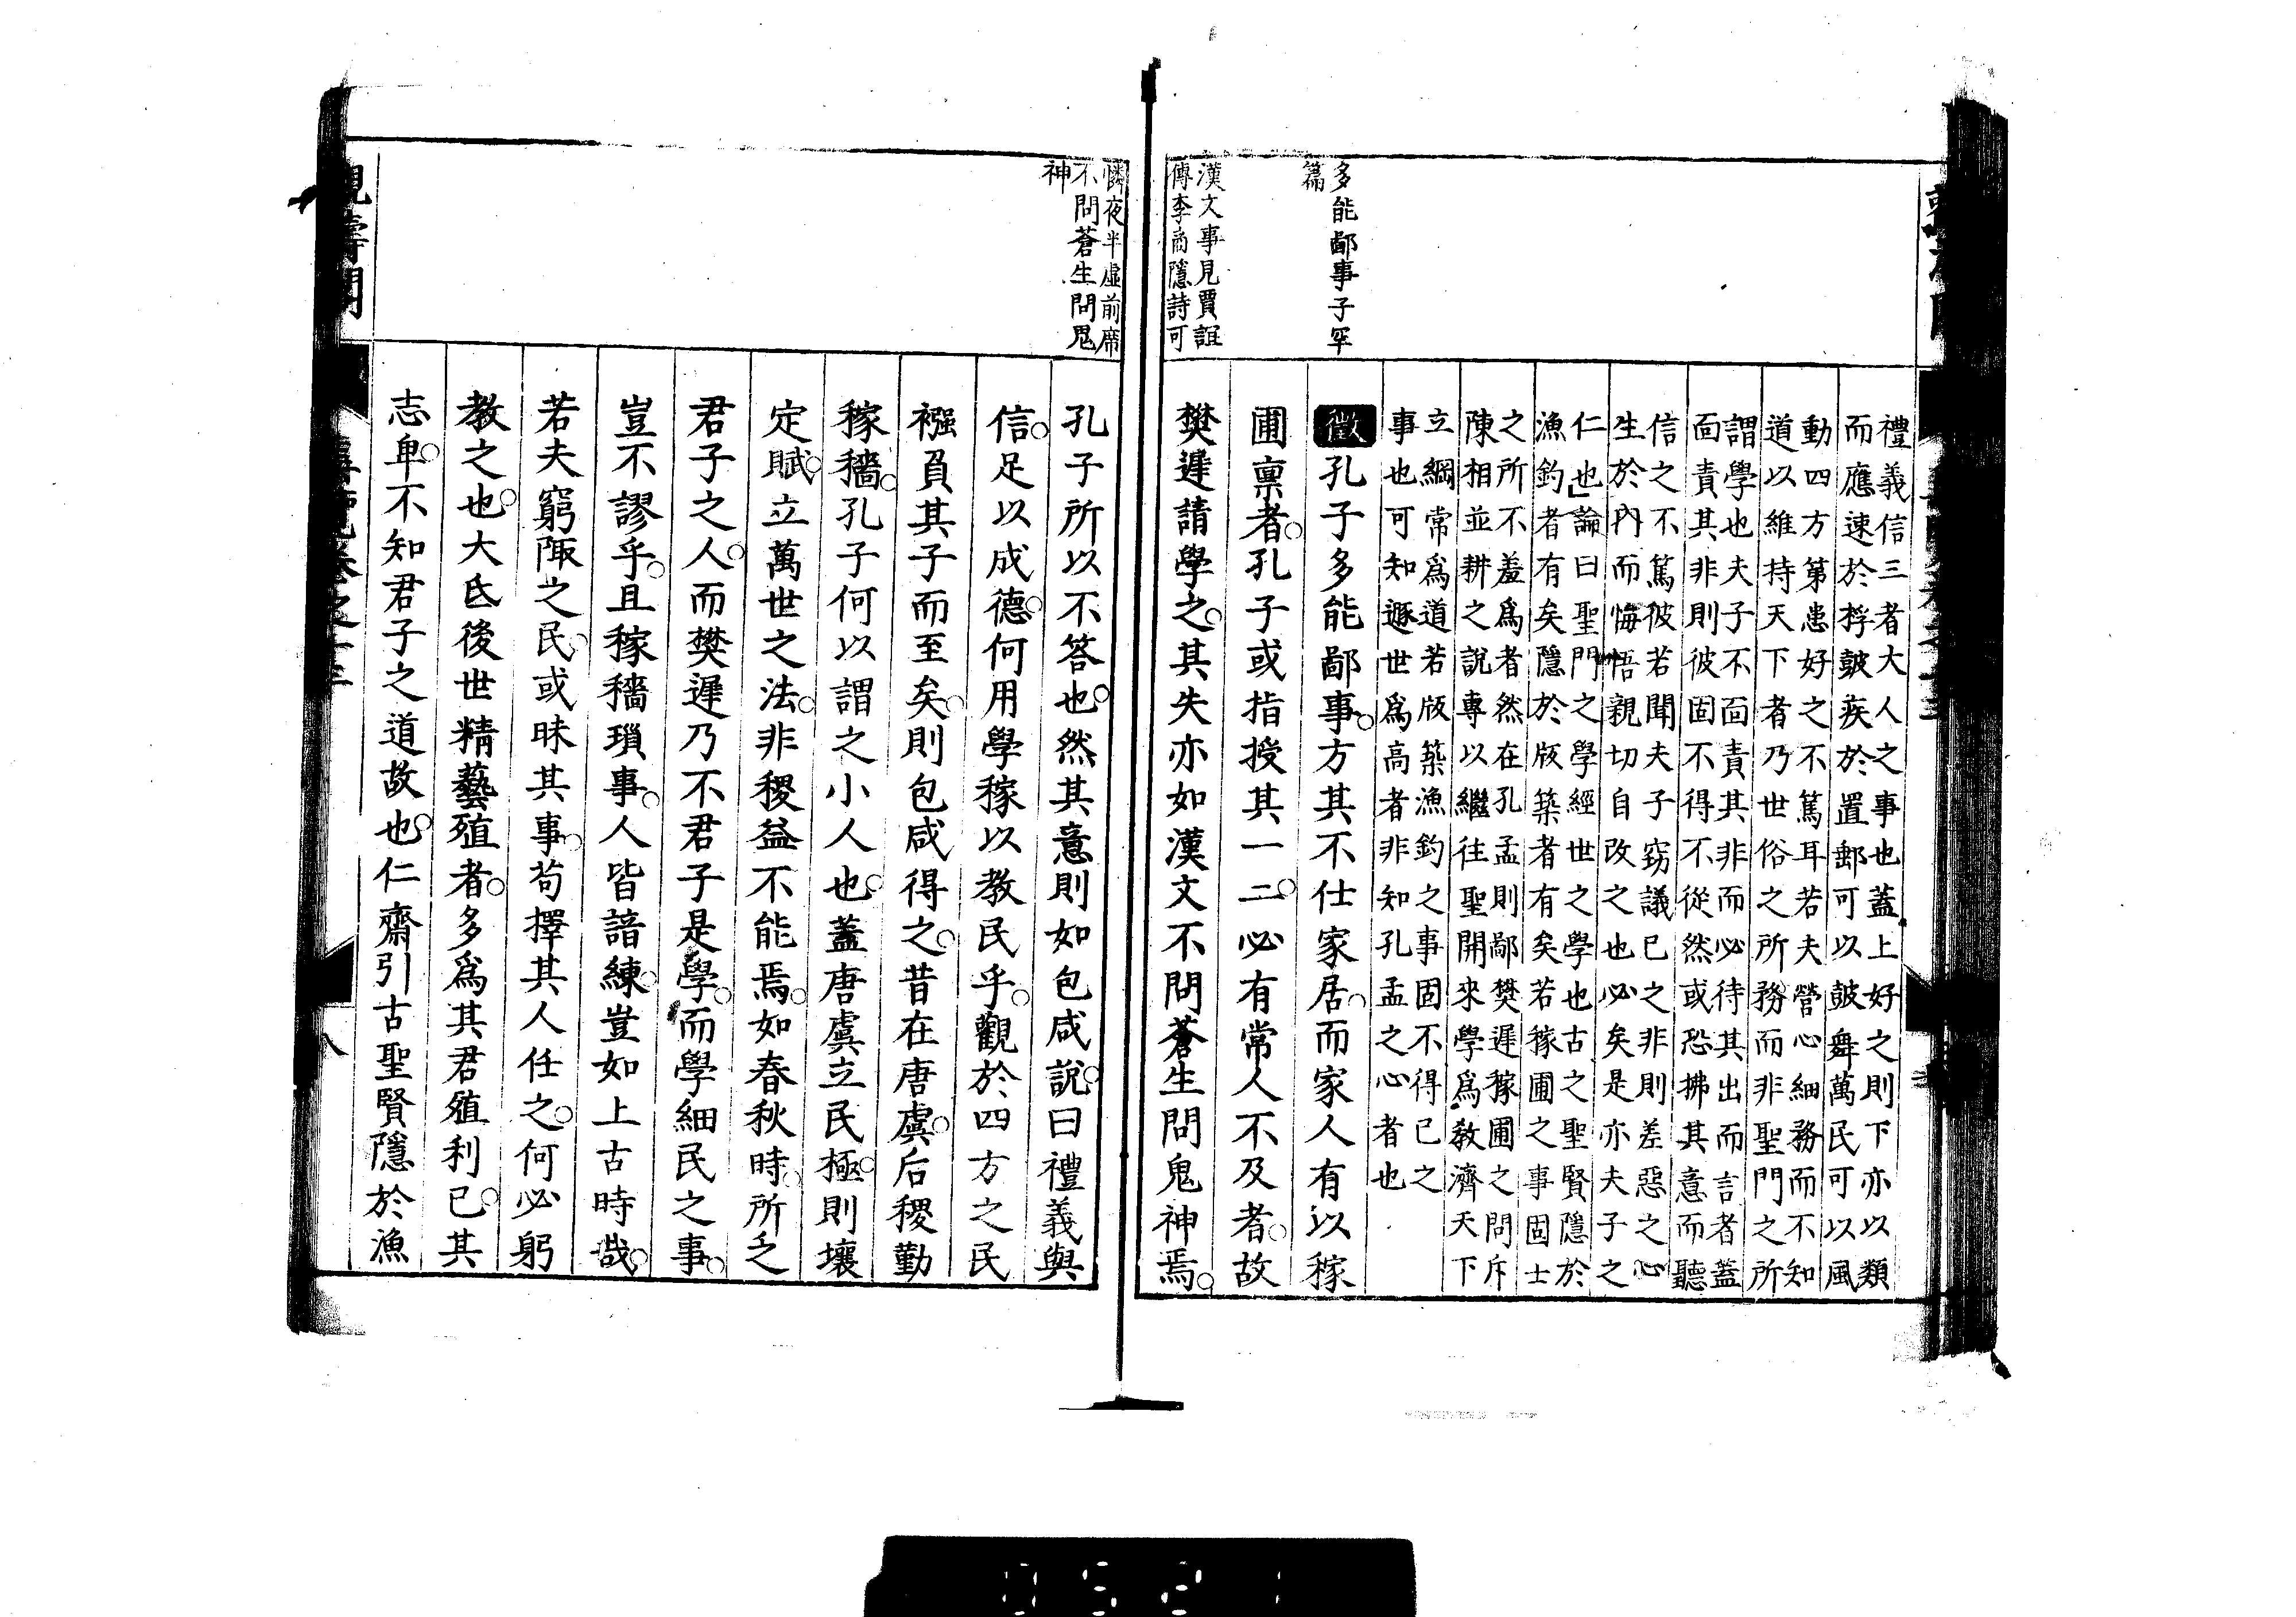 禮義信三者大人之事也蓋上好之則下亦以類
而應速於桴皷疾於置郵可以皷舞萬民可以風
動四方第患好之不篤耳若夫營心細務而不知
道以維持天下者乃世俗之所務而非聖門之所
謂學也夫子不面責其非而必待其出而言者蓋
面責其非則彼固不得不從然或恐拂其意而聽
信之不篤彼若聞夫子竊議己之非則差惡之心
生於內而悔悟親切自改之也必矣是亦夫子之
仁也論曰聖門之學經世之學也古之聖賢隱於
漁釣者有矣隱於版築者有矣若稼圃之事固士
之所不羞爲者然在孔孟則鄙樊遲稼圃之問斥
陳相並耕之說專以繼往聖開來學爲教濟天下
立綱常爲道若版築漁釣之事固不得已之
事也可知遯世爲高者非知孔孟之心者也
徵孔子多能鄙事方其不仕家居而家人有以稼
圃稟者孔子或指授其一二必有常人不及者故
樊遲請學之其失亦如漢文不問蒼生問鬼神焉
多能鄙事子罕
篇
漢文事見賈誼
傳李商隱詩可
憐夜半虛前席
不問蒼生問鬼
神
孔子所以不答也然其意則如包咸說曰禮義與
信足以成德何用學稼以教民乎觀於四方之民
襁負其子而至矣則包咸得之昔在唐虞后稷勤
稼穡孔子何以謂之小人也蓋唐虞立民極則壤
定賦立萬世之法非稷益不能焉如春秋時所乏
君子之人而樊遲乃不君子是學而學細民之事
豈不謬乎且稼穡瑣事人皆諳練豈如上古時哉
若夫窮陬之民或昧其事苟擇其人任之何必躬
教之也大氐後世精藝殖者多爲其君殖利已其
志卑不知君子之道故也仁齋引古聖賢隱於漁
八